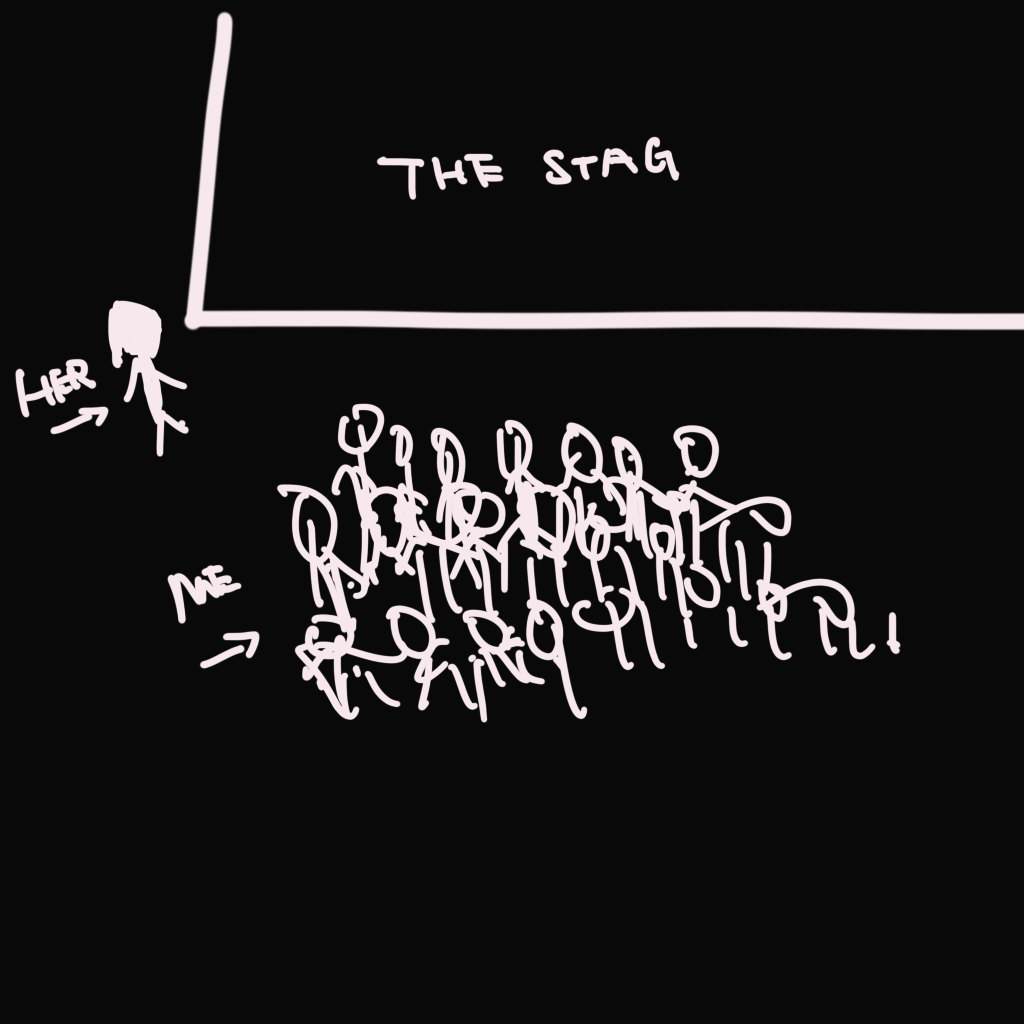 THE STAG
HER
ME